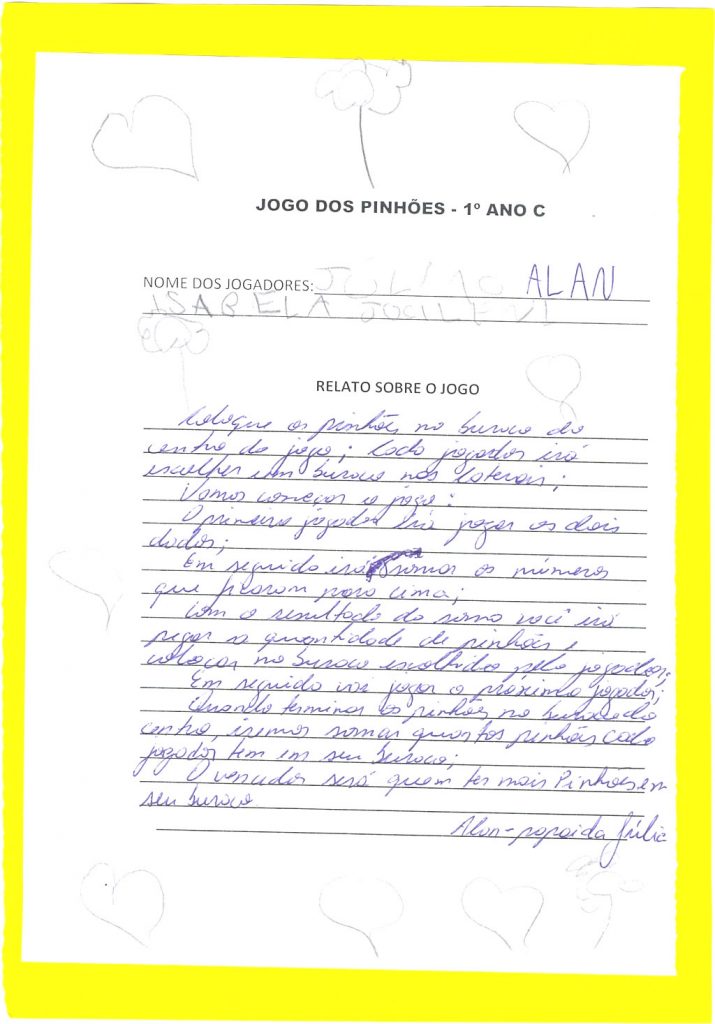 JOGO DOS PINHÕES - 1º ANO C
NOME DOS JOGADORES: JÚLIA ALAN
ISABELA JOCILENI
RELATO SOBRE O JOGO
Coloque os pinhões no buraco do
centro do jogo; Cada jogador irá
escolher um buraco nas laterais;
Vamos começar o jogo:
O primeiro jogador irá jogar os dois
dados;
Em seguida irá somar os números
que ficaram para cima;
Com o resultado da soma você irá
pegar a quantidade de pinhões e
colocar no buraco escolhido pelo jogador;
Em seguida vai jogar o próximo jogador;
Quando terminar os pinhões no buraco do
centro, iremos somar quantos pinhões cada
jogador tem em seu buraco;
O vencedor será quem ter mais Pinhões em
seu buraco
Alan - papai da Júlia